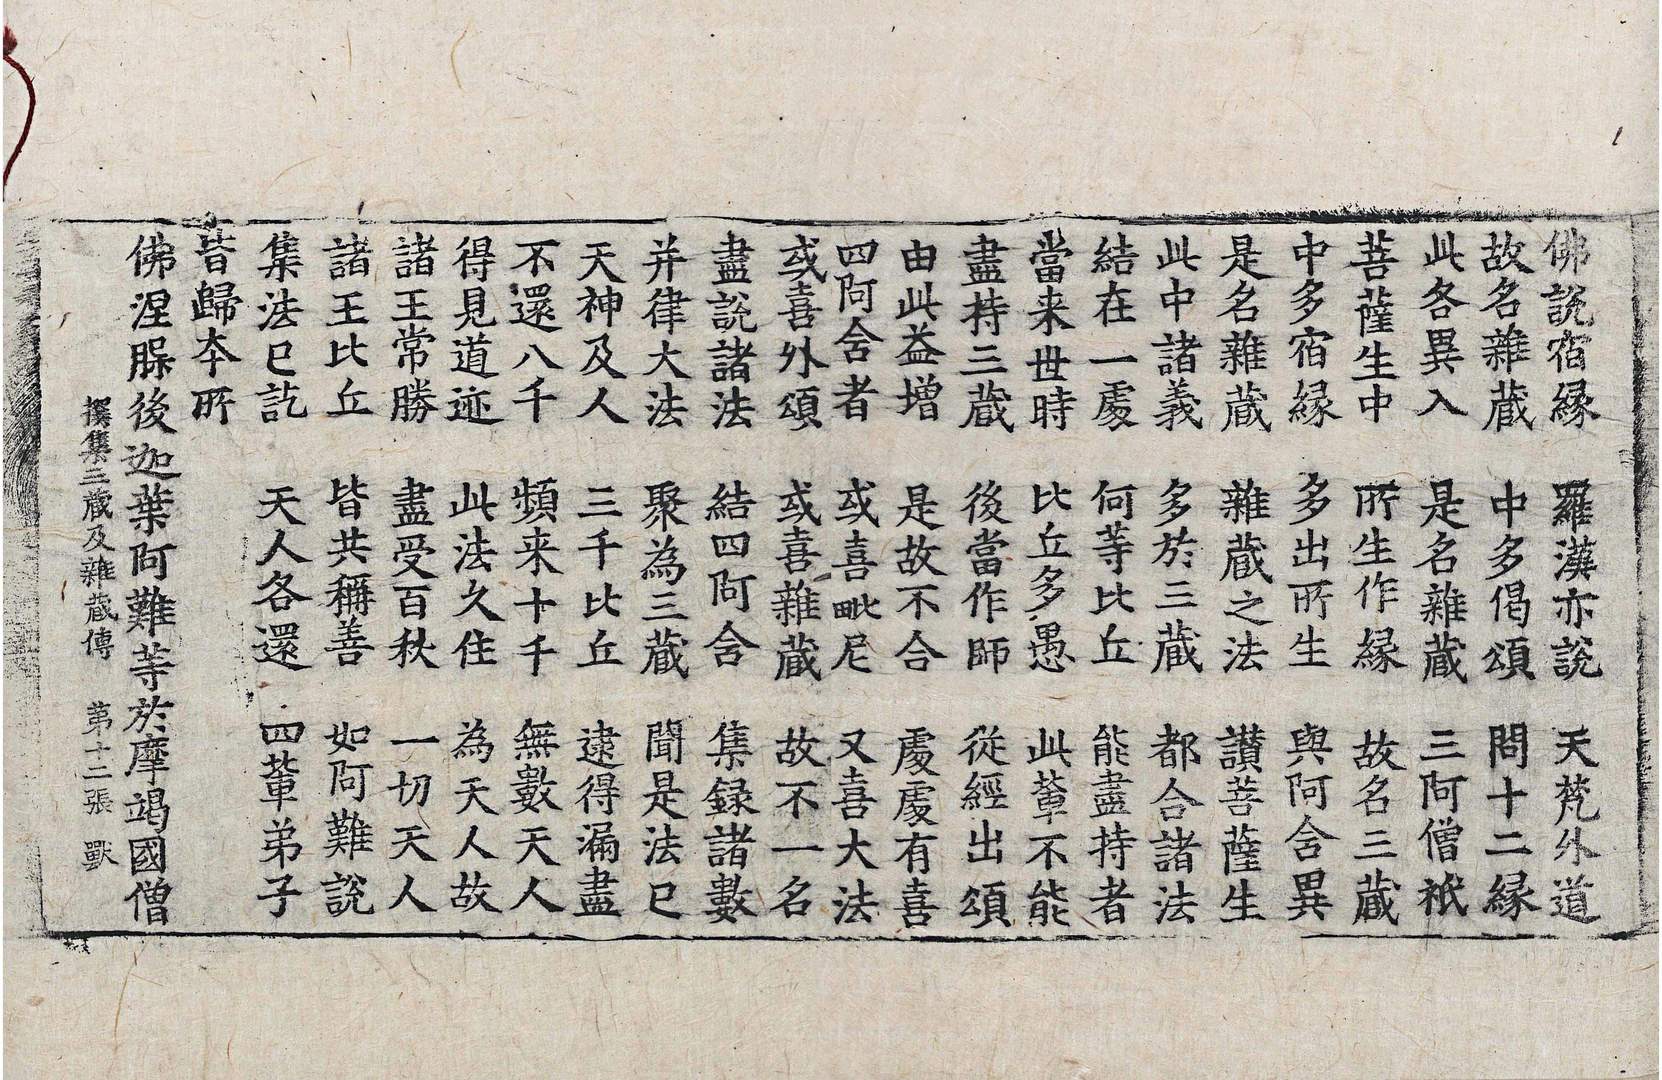 佛說宿縁　羅漢亦說　天梵外道
故名雜蔵　中多偈頌　問十二縁
此各異入　是名雜蔵　三阿僧祇
菩薩生中　所生作縁　故名三蔵
中多宿縁　多出所生　與阿含異
是名雜蔵　雜蔵之法　讃菩薩生
此中諸義　多於三蔵　都合諸法
結在一處　何等比丘　能盡持者
當来世時　比丘多愚　此輩不能
盡持三蔵　後當作師　從經出頌
由此益增　是故不合　處處有喜
四阿含者　或喜毗尼　又喜大法
或喜外頌　或喜雜蔵　故不一名
盡說諸法　結四阿含　集録諸數
并律大法　聚為三蔵　聞是法已
天神及人　三千比丘　逮得漏盡
不還八千　頻来十千　無數天人
得見道迹　此法久住　為天人故
諸王常勝　盡受百秋　一切天人
諸王比丘　皆共稱善　如阿難說
集法已訖　天人各還　四輩弟子
皆歸本所
佛涅脲後迦葉阿難等於摩竭國僧
撰集三蔵及雜蔵傳　第十二張　獸